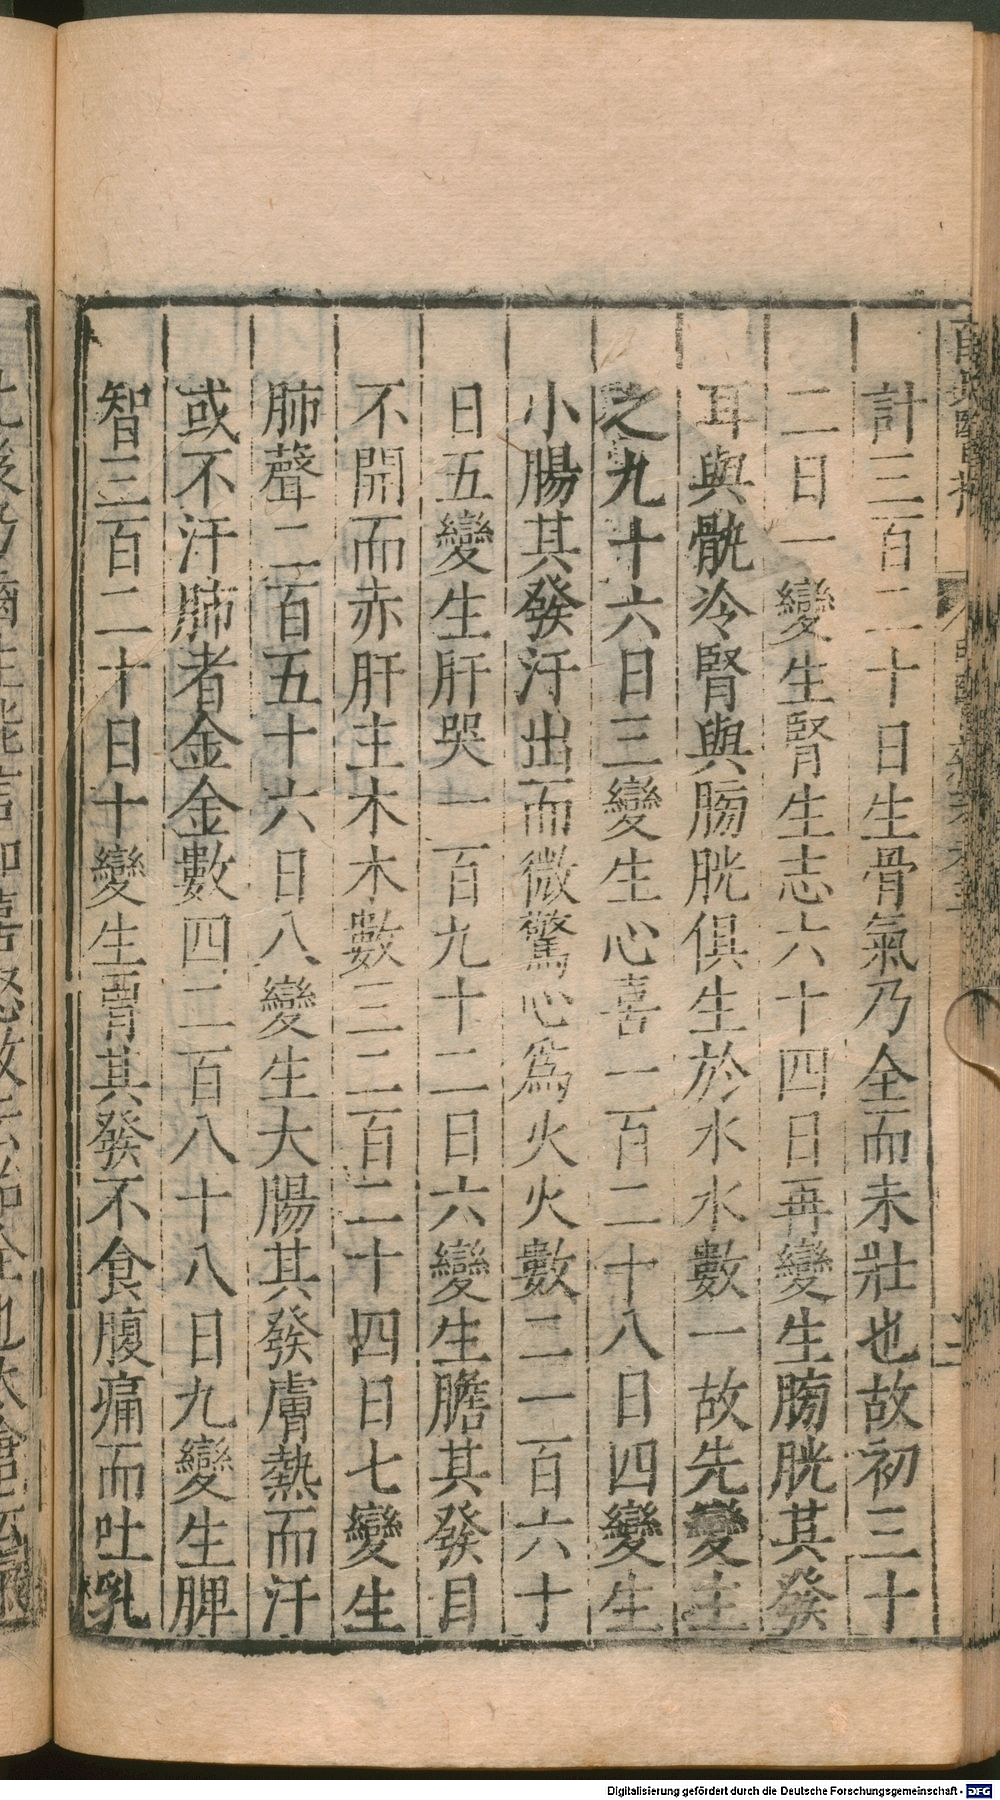 計三百二十日生骨氣乃全而未壯也故初三十
二日一變生腎生志六十四日再變生膀胱其發
耳與骩冷腎與膀胱俱生於水水數一故先變主
之九十六日三變生心喜一百二十八日四變生
小腸其發汗出而微驚心為火火數二一百六十
日五變生肝哭一百九十二日六變生膽其發目
不開而赤肝主木木數三二百二十四日七變生
肺聲二百五十六日八變生大腸其發膚熱而汗
或不汗肺者金金數四二百八十八日九變生脾
智三百二十日十變生胃其發不食腹痛而吐乳
Digitalisierung gefördert durch die Deutsche Forschungsgemeinschaft - DFG